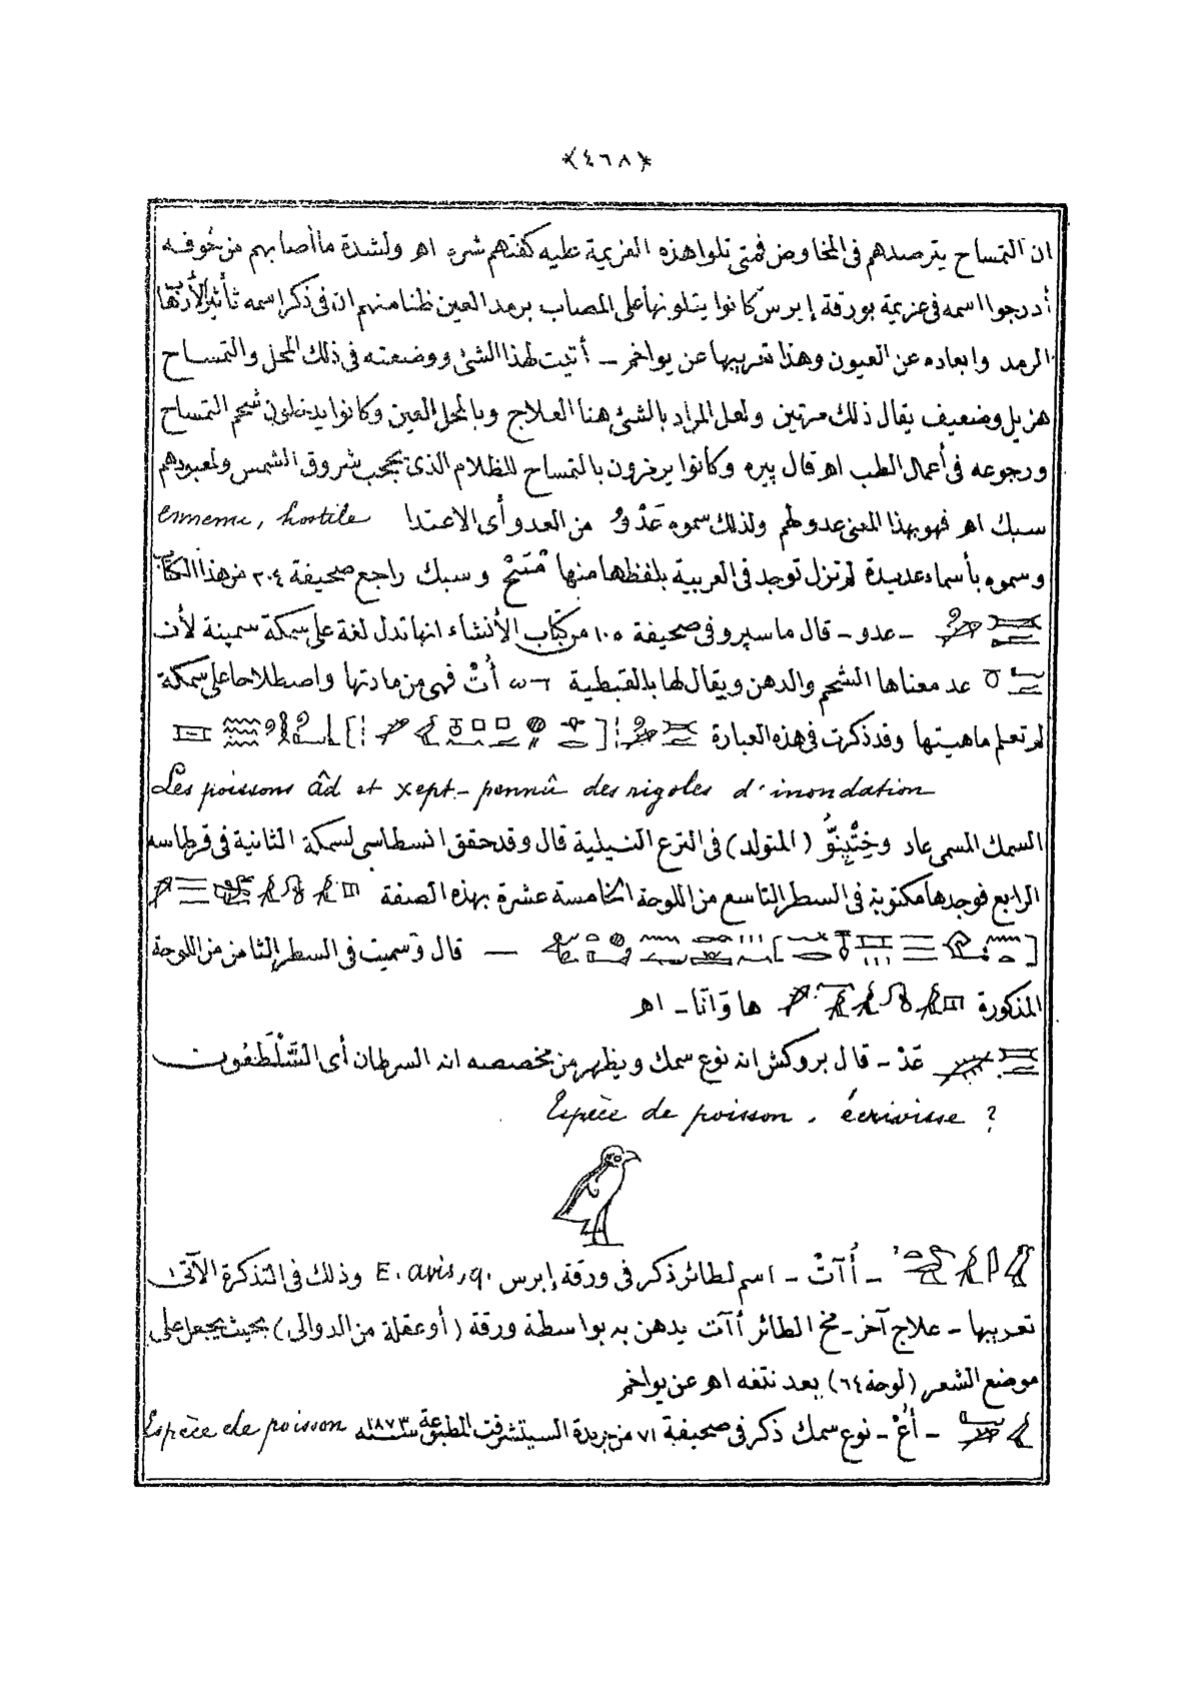 ﴿٤٦٨﴾
ان التمساح يترصدهم فى المخاوض فمتى تلوا هذه العزيمة عليه كفتهم شره اهـ ولشدة ما أصابهم من خوفه
أدرجوا اسمه فى عزيمة بورقة إبرس كانوا يتلونها على المصاب برمد العين ظنا منهم ان فى ذكر اسمه تأثيرا لأذهاب
الرمد وابعاده عن العيون وهذا تعريبها عن يواخم ـ أتيت لهذا الشئ ووضعته فى ذلك المحل والتمساح
هزيل وضعيف يقال ذلك مرتين ولعل المراد بالشئ هنا العلاج وبالمحل العين وكانوا يدخلون شحم التمساح
ورجوعه فى أعمال الطب اهـ قال پيره وكانوا يرمزون بالتمساح للظلام الذى يحجب شروق الشمس ولمعبودهم
سبك اهـ فهو بهذا المعنى عدو لهم ولذلك سموه عَدْوُ من العدو أى الاعتدا ennemi, hostile
وسموه بأسماء عديدة لم تزل توجد فى العربية بلفظها منها مْسَحْ وسبك راجع صحيفة ٢٠٤ من هذا الكتاب
ـ عدو ـ قال ماسپرو فى صحيفة ١٠٥ من كتاب الأنشاء انها تدل لغة على سمكة سمينة لأن
عد معناها الشحم والدهن ويقال لها بالقبطية ⲱⲧ أُتْ فهى من مادتها واصطلاحا على سمكة
لم تعلم ماهيتها وقد ذكرت فى هذه العبارة
Les poissons âd et xept-pennû des rigoles d'inondation
السمك المسمى عاد وخِتْپِنُّو (المتولد) فى الترع النيلية قال وقد حقق انسطاسى لسمكة الثانية فى قرطاسه
الرابع فوجدها مكتوبة فى السطر التاسع من اللوحة الخامسة عشرة بهذه الصفة
— قال وسميت فى السطر الثامن من اللوحة
المذكورة ها وَانَا ـ اهـ
عَدْ ـ قال بروكش انه نوع سمك ويظهر من مخصصه انه السرطان أى السَّلْطَعُون
Espèce de poisson, écrivisse ?
ـ أُآتْ ـ اسم لطائر ذكر فى ورقة إبرس E. avis, q. وذلك فى التذكرة الآتى
تعريبها ـ علاج آخر ـ مخ الطائر أآت يدهن به بواسطة ورقة (أو عقلة من الدوالى) بحيث يجعل على
موضع الشعر (لوحة ٦٤) بعد نتفه اهـ عن يواخم
ـ أُعْ ـ نوع سمك ذكر فى صحيفة ٧١ من جريدة السيتشرفت المطبوعة سنة ١٨٧٣ Espèce de poisson